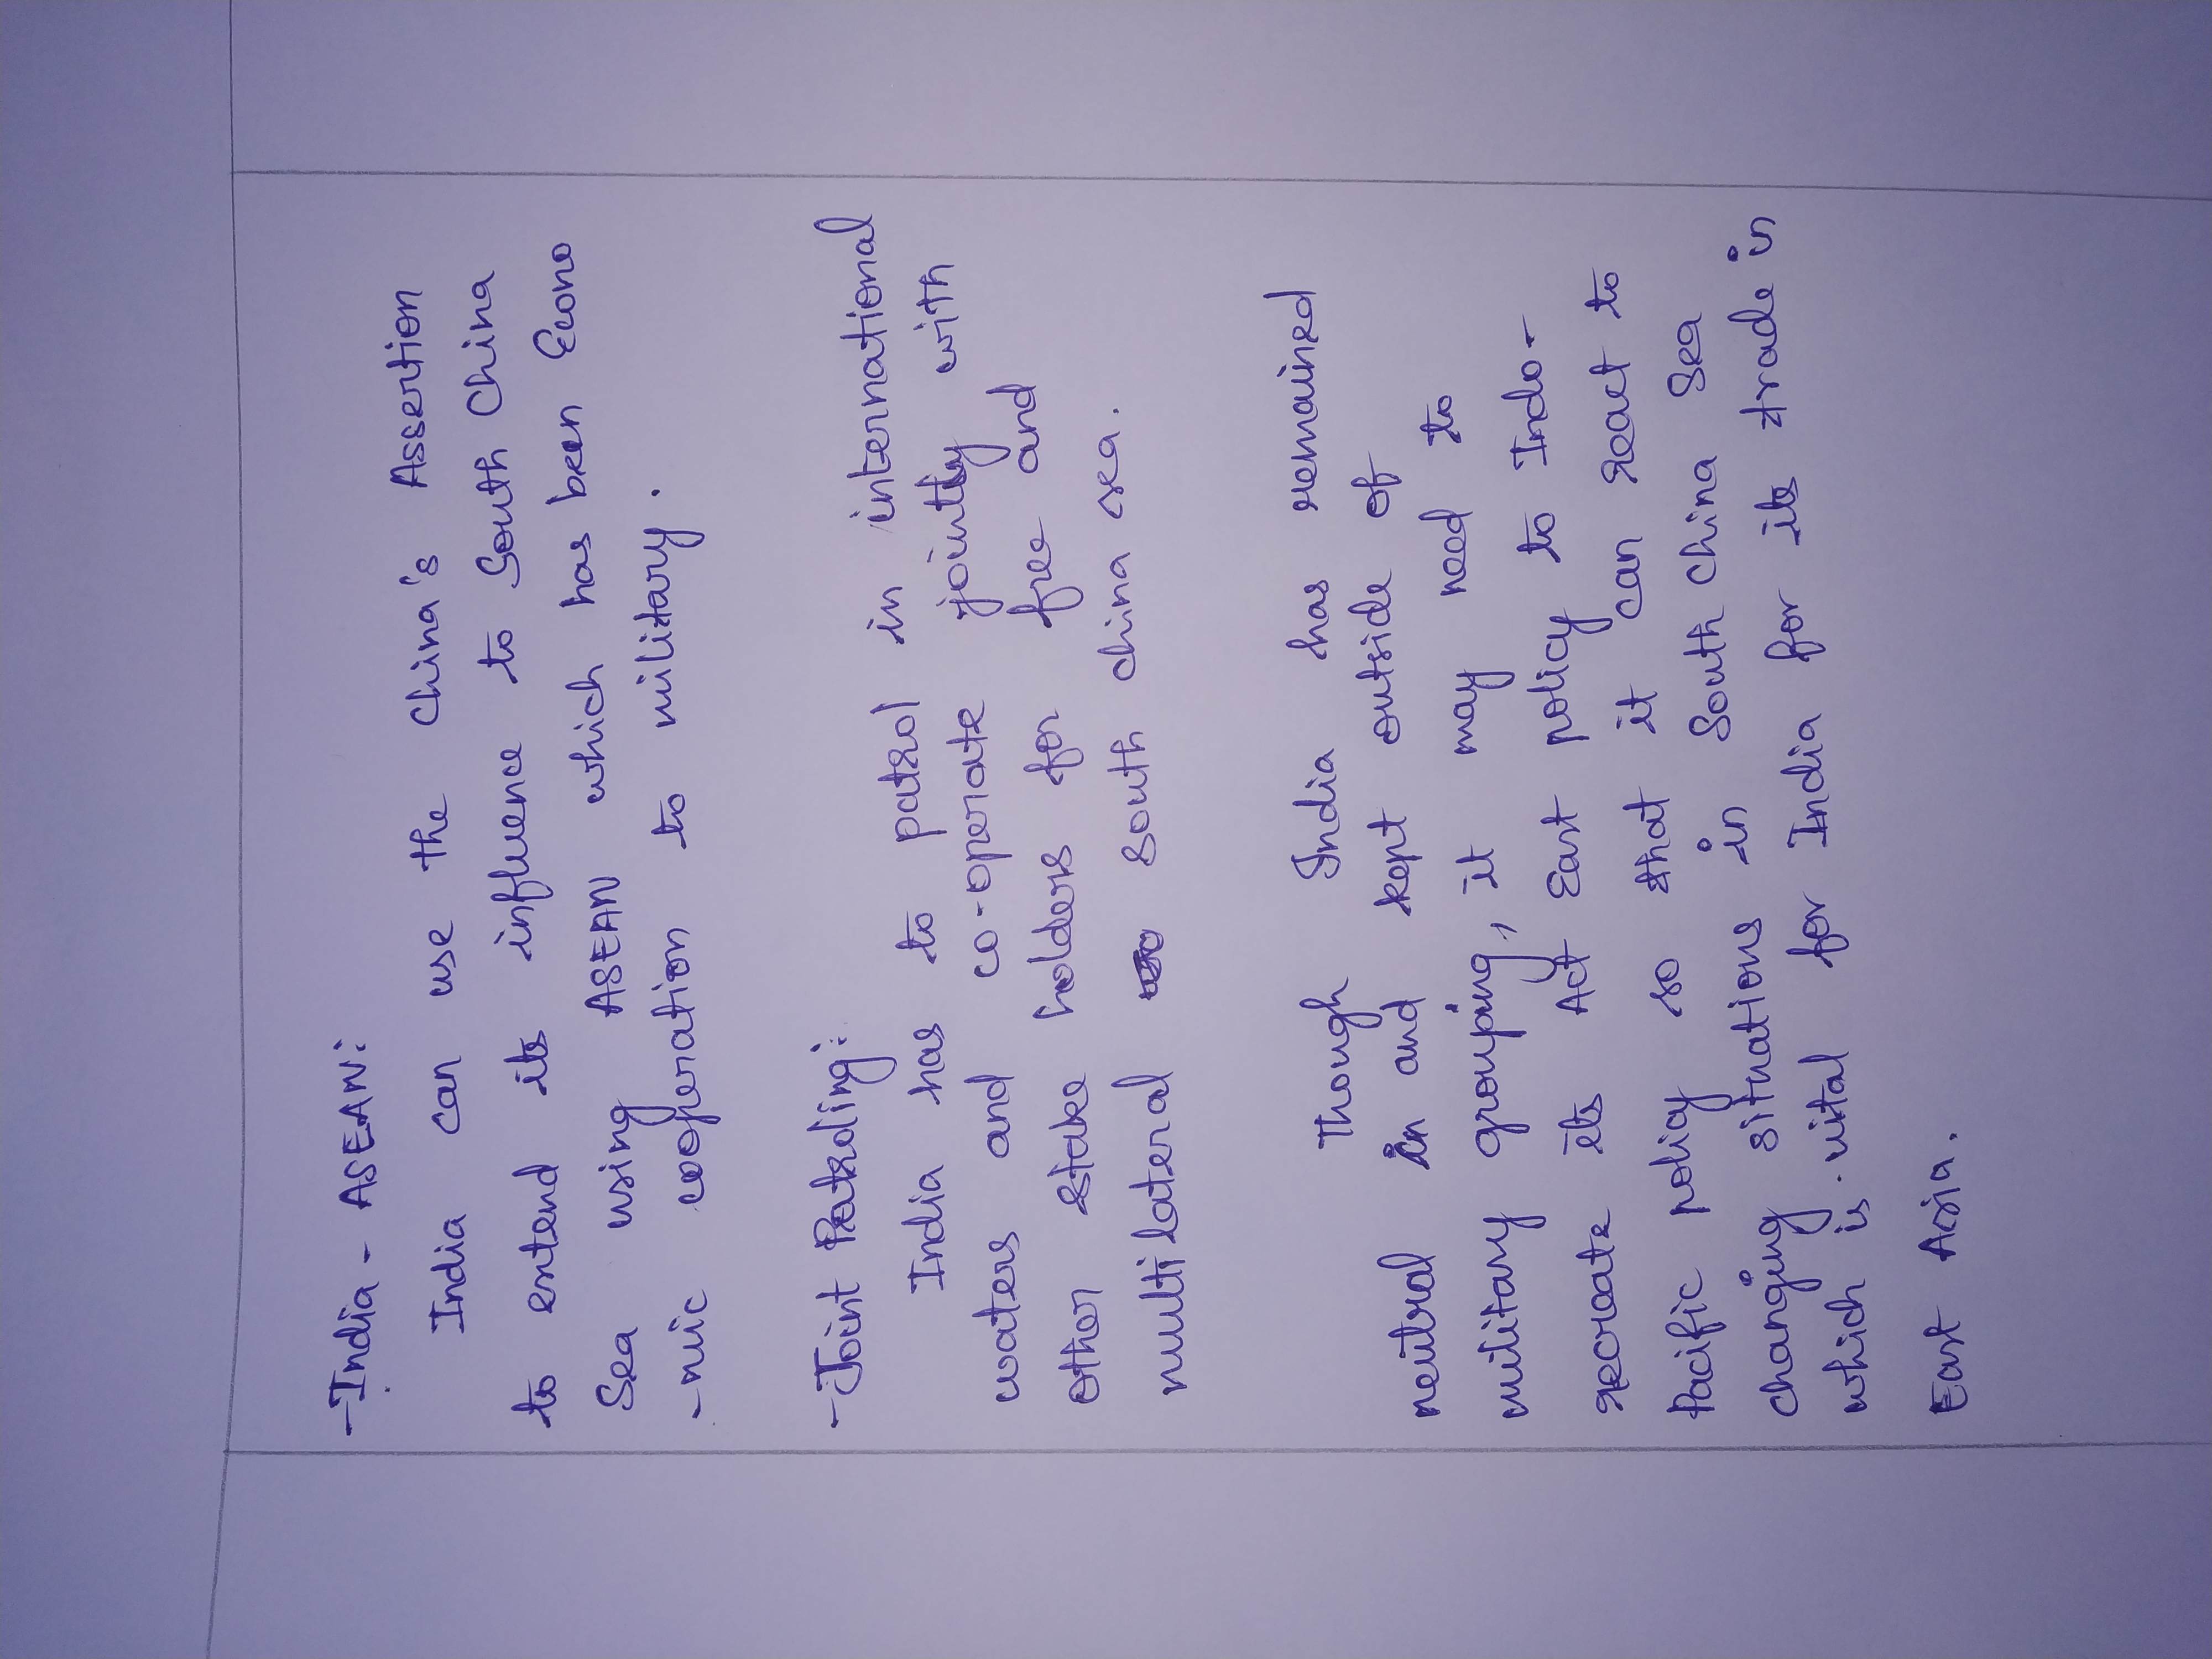 -India - ASEAN:
India can use the China's Assertion
to entend its influence to South China
Sea using ASEAN which has been Econo
-mic cooperation to military.
-Joint Patroling:
India has to patrol in international
waters and co-operate jointly with
other stake holders for free and
multilateral south china sea.
Though India has remained
neutral in and kept outside of
military grouping, it may need to
recreate its Act East policy to Indo-
Pacific policy so that it can react to
changing situations in South China Sea
which is vital for India for its trade in
East Asia.